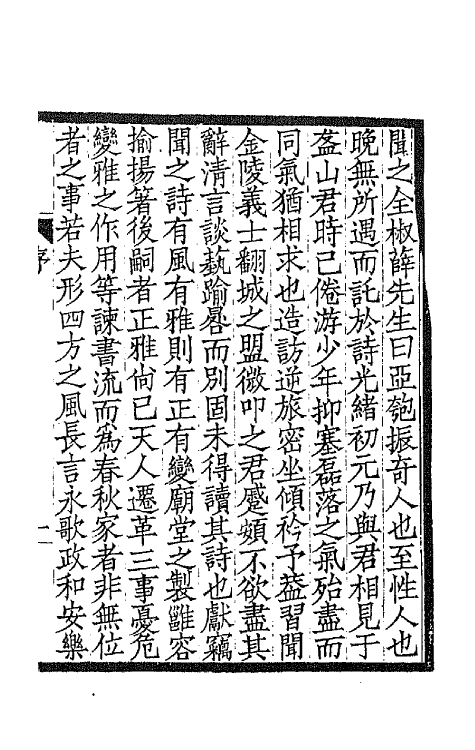 聞之全椒薛先生曰亞匏振奇人也至性人也
晚無所遇而託於詩光緒初元乃與君相見于
盋山君時已倦游少年抑塞磊落之氣殆盡而
同氣猶相求也造訪逆旅密坐傾衿予蓋習聞
金陵義士翻城之盟微叩之君蹙頞不欲盡其
辭清言談蓺踰晷而別固未得讀其詩也獻竊
聞之詩有風有雅則有正有變廟堂之製雝容
揄揚箸後嗣者正雅尙已天人遷革三事憂危
變雅之作用等諫書流而爲春秋家者非無位
者之事若夫形四方之風長言永歌政和安樂
序
一